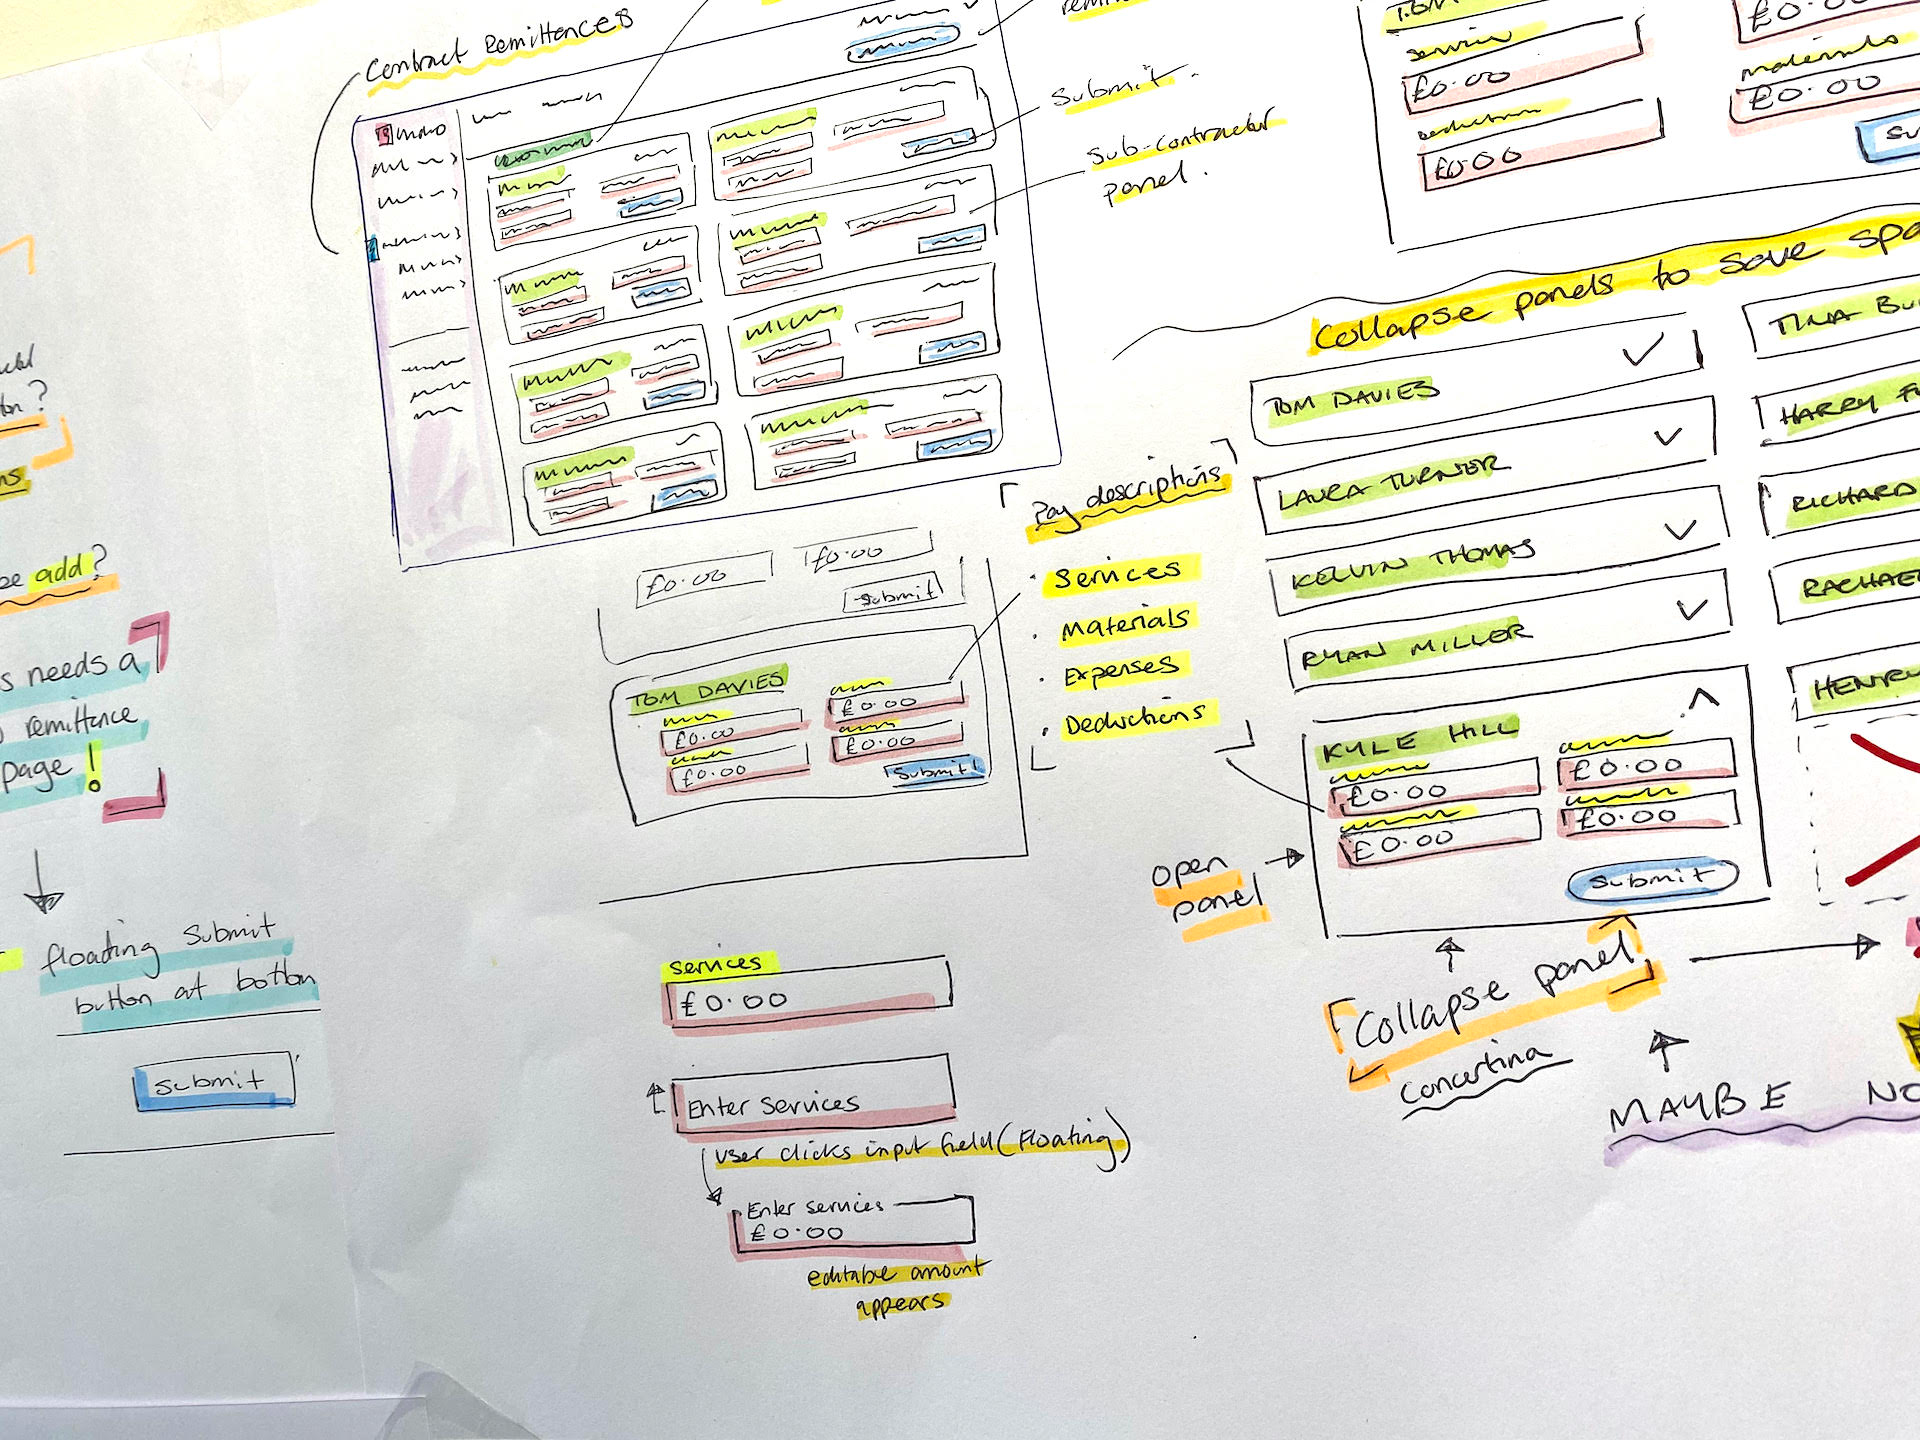 Contract Remittences
Submit.
Sub-contractor
panel.
service
£0.00
£0.00
£0.00
materials
£0.00
Collapse panels to save
TOM DAVIES
LAURA TURNER
KELVIN THOMAS
RYAN MILLER
KYLE HILL
£0.00
£0.00
£0.00
£0.00
Submit
TINA
HARRY
RICHARD
HENRY
Pay descriptions
· Services
· Materials
· Expenses
· Deductions
£0.00
£0.00
Submit
TOM DAVIES
£0.00
£0.00
£0.00
£0.00
Submit
open
panel
Collapse panel
concertina
MAYBE
add?
needs a
remittence
page!
floating submit
button at bottom
submit
services
£0.00
Enter services
user clicks input field (floating)
Enter services
£0.00
editable amount
appears